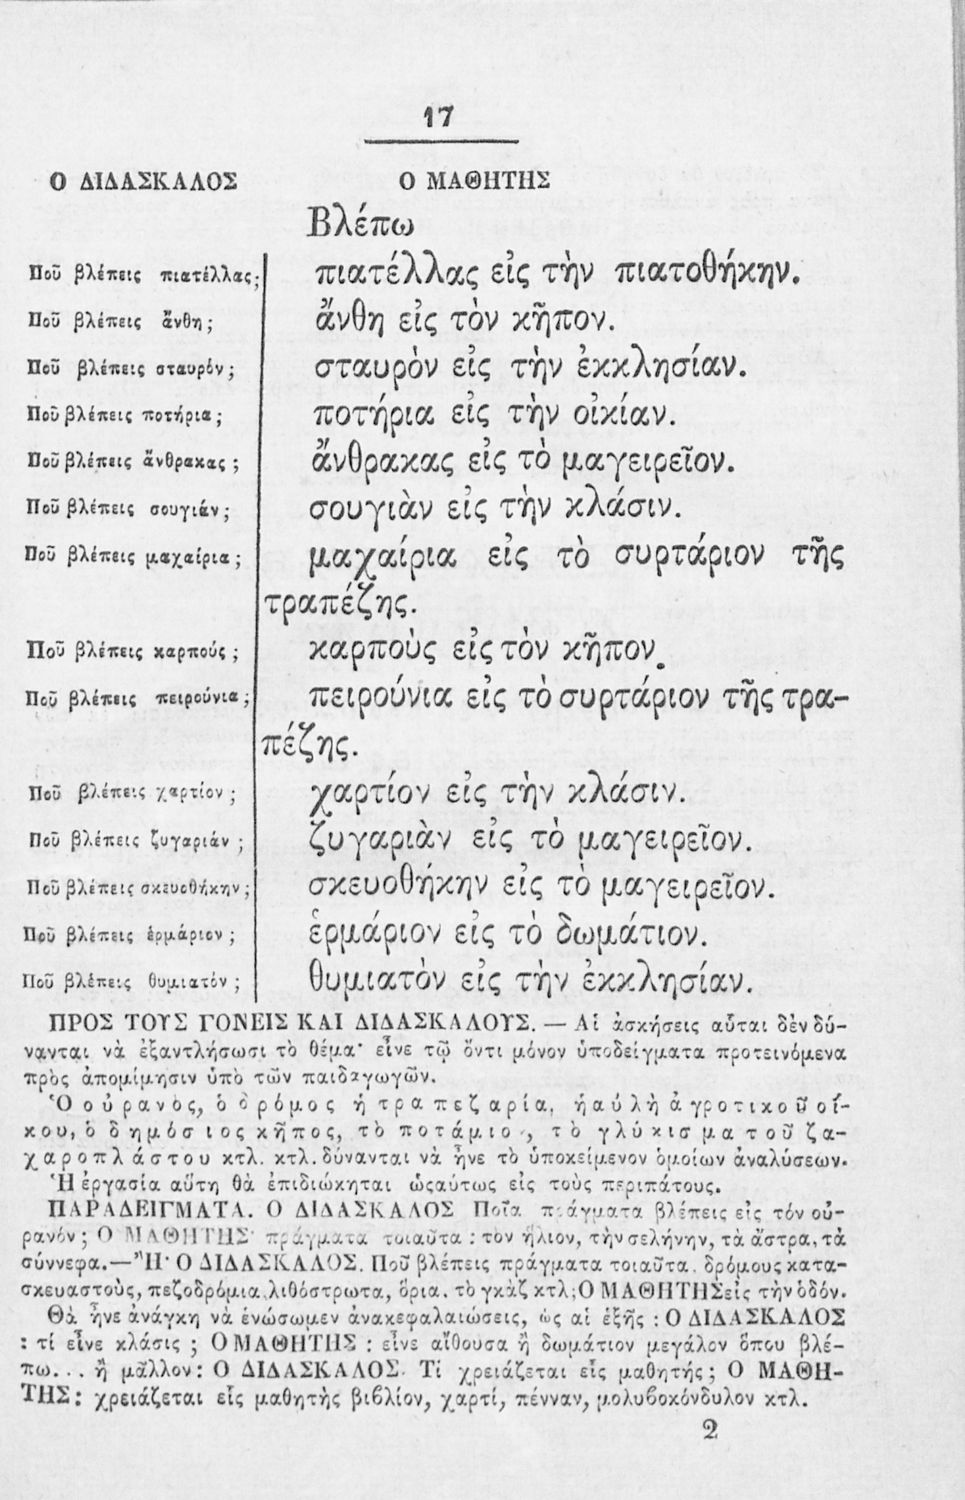 17
Ο ΔΙΔΑΣΚΑΛΟΣ Ο ΜΑΘΗΤΗΣ
Βλέπω
Ποῦ βλέπεις πιατέλλας; πιατέλλας εἰς τὴν πιατοθήκην.
Ποῦ βλέπεις ἄνθη; ἄνθη εἰς τὸν κῆπον.
Ποῦ βλέπεις σταυρόν; σταυρὸν εἰς τὴν ἐκκλησίαν.
Ποῦ βλέπεις ποτήρια; ποτήρια εἰς τὴν οἰκίαν.
Ποῦ βλέπεις ἄνθρακας; ἄνθρακας εἰς τὸ μαγειρεῖον.
Ποῦ βλέπεις σουγιάν; σουγιὰν εἰς τὴν κλάσιν.
Ποῦ βλέπεις μαχαίρια; μαχαίρια εἰς τὸ συρτάριον τῆς
τραπέζης.
Ποῦ βλέπεις καρπούς; καρποὺς εἰς τὸν κῆπον.
Ποῦ βλέπεις πειρούνια; πειρούνια εἰς τὸ συρτάριον τῆς τρα-
πέζης.
Ποῦ βλέπεις χαρτίον; χαρτίον εἰς τὴν κλάσιν.
Ποῦ βλέπεις ζυγαριάν; ζυγαριὰν εἰς τὸ μαγειρεῖον.
Ποῦ βλέπεις σκευοθήκην; σκευοθήκην εἰς τὸ μαγειρεῖον.
Ποῦ βλέπεις ἑρμάριον; ἑρμάριον εἰς τὸ δωμάτιον.
Ποῦ βλέπεις θυμιατόν; θυμιατὸν εἰς τὴν ἐκκλησίαν.
ΠΡΟΣ ΤΟΥΣ ΓΟΝΕΙΣ ΚΑΙ ΔΙΔΑΣΚΑΛΟΥΣ. — Αἱ ἀσκήσεις αὗται δὲν δύ-
νανται νὰ ἐξαντλήσωσι τὸ θέμα· εἶνε τῷ ὄντι μόνον ὑποδείγματα προτεινόμενα
πρὸς ἀπομίμησιν ὑπὸ τῶν παιδαγωγῶν.
Ὁ οὐρανὸς, ὁ δρόμος ἡ τραπεζαρία, ἡ αὐλὴ ἀγροτικοῦ οἴ-
κου, ὁ δημόσιος κῆπος, τὸ ποτάμιον, τὸ γλύκισμα τοῦ ζα-
χαροπλάστου κτλ. κτλ. δύνανται νὰ ἦνε τὸ ὑποκείμενον ὁμοίων ἀναλύσεων.
Ἡ ἐργασία αὕτη θὰ ἐπιδιώκηται ὡςαύτως εἰς τοὺς περιπάτους.
ΠΑΡΑΔΕΙΓΜΑΤΑ. Ο ΔΙΔΑΣΚΑΛΟΣ Ποῖα πράγματα βλέπεις εἰς τόν οὐ-
ρανόν; Ο ΜΑΘΗΤΗΣ· πράγματα τοιαῦτα : τὸν ἥλιον, τὴν σελήνην, τὰ ἄστρα, τὰ
σύννεφα.—Ἢ· Ο ΔΙΔΑΣΚΑΛΟΣ. Ποῦ βλέπεις πράγματα τοιαῦτα. δρόμους κατα-
σκευαστοὺς, πεζοδρόμια, λιθόστρωτα, ὅρια. τὸ γκὰζ κτλ; Ο ΜΑΘΗΤΗΣ εἰς τὴν ὁδόν.
Θὰ ἦνε ἀνάγκη νὰ ἑνώσωμεν ἀνακεφαλαιώσεις, ὡς αἱ ἑξῆς : Ο ΔΙΔΑΣΚΑΛΟΣ
: τί εἶνε κλάσις ; Ο ΜΑΘΗΤΗΣ : εἶνε αἴθουσα ἢ δωμάτιον μεγάλον ὅπου βλέ-
πω... ἢ μᾶλλον: Ο ΔΙΔΑΣΚΑΛΟΣ. Τί χρειάζεται εἷς μαθητής; Ο ΜΑΘΗ-
ΤΗΣ: χρειάζεται εἷς μαθητὴς βιβλίον, χαρτί, πένναν, μολυβοκόνδυλον κτλ.
2